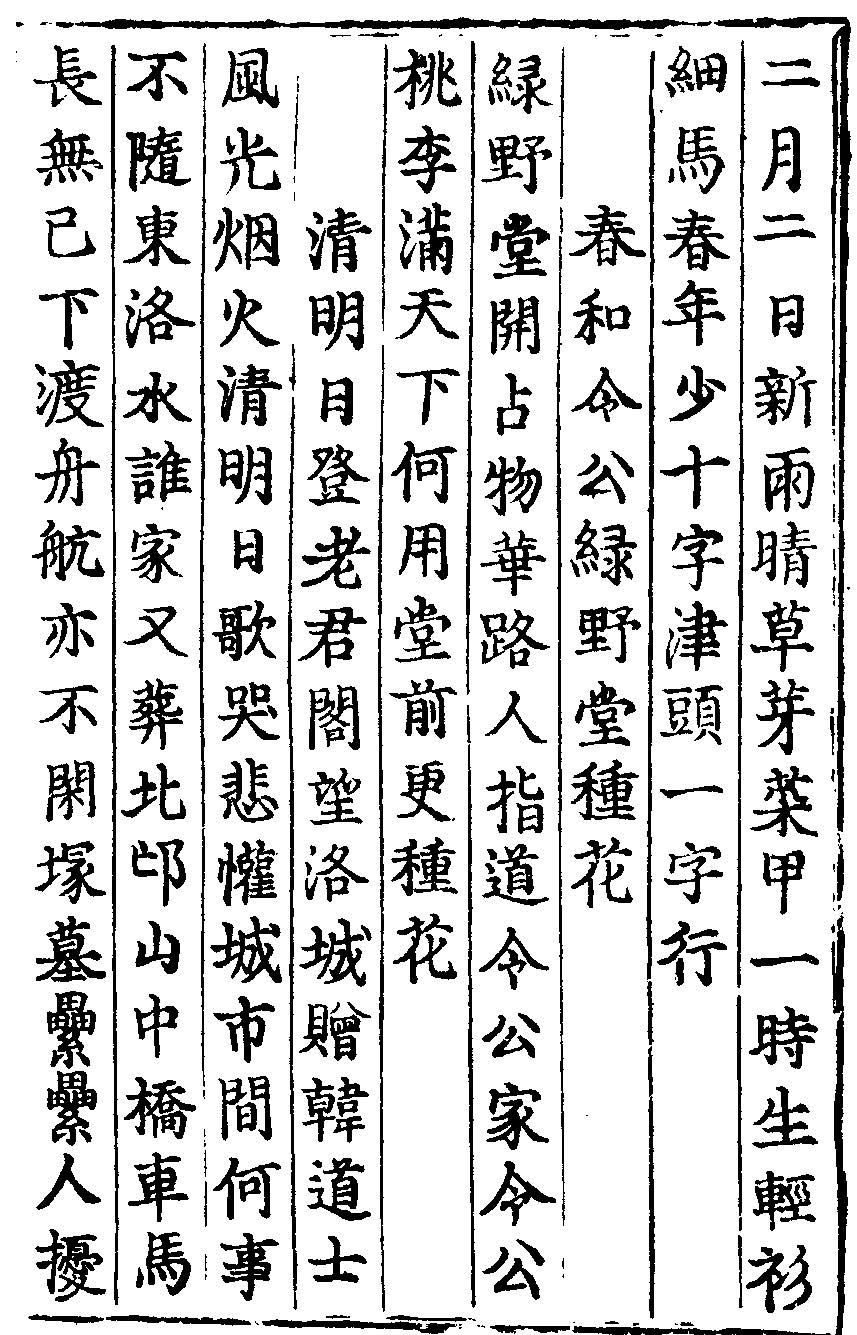 二月二日新雨晴草芽菜甲一時生輕衫
細馬春年少十字津頭一字行
春和令公緑野堂種花
緑野堂開占物華路人指道令公家令公
桃李滿天下何用堂前更種花
清明日登老君閣望洛城贈韓道士
風光烟火清明日歌哭悲懽城市間何事
不隨東洛水誰家又葬北邙山中橋車馬
長無已下渡舟航亦不閑塚墓纍纍人擾